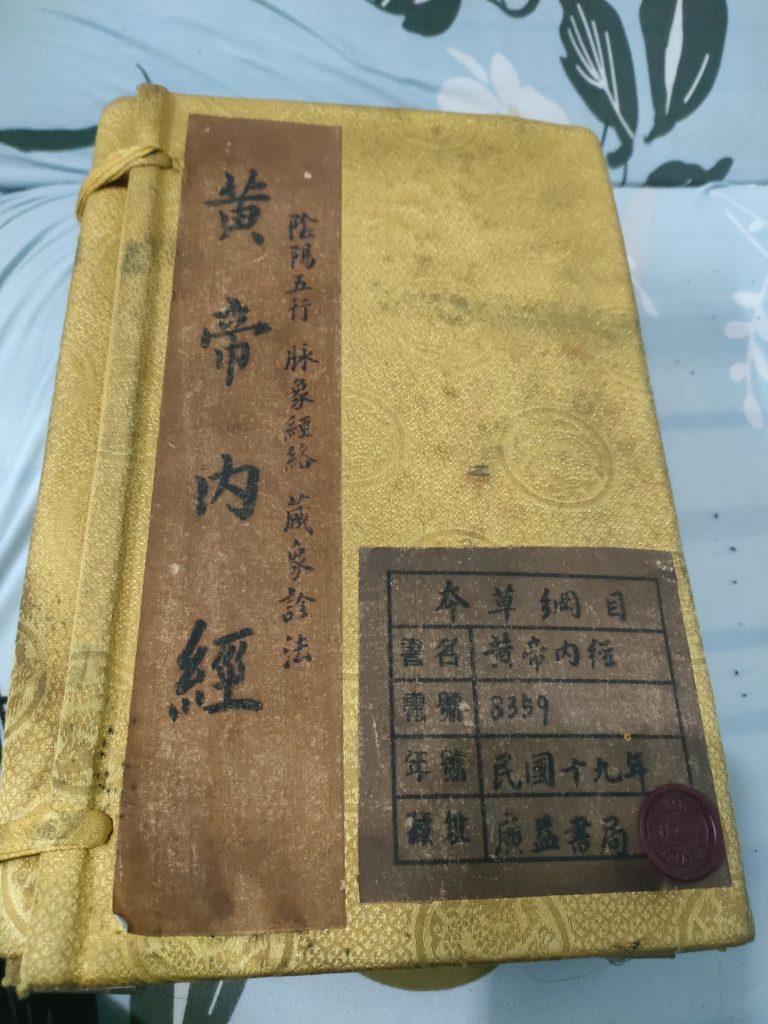 黄帝内經
陰陽五行 脉象經絡 蔵象診法
本草綱目
書名 黄帝内经
書號 8359
年號 民國十九年
廣益書局